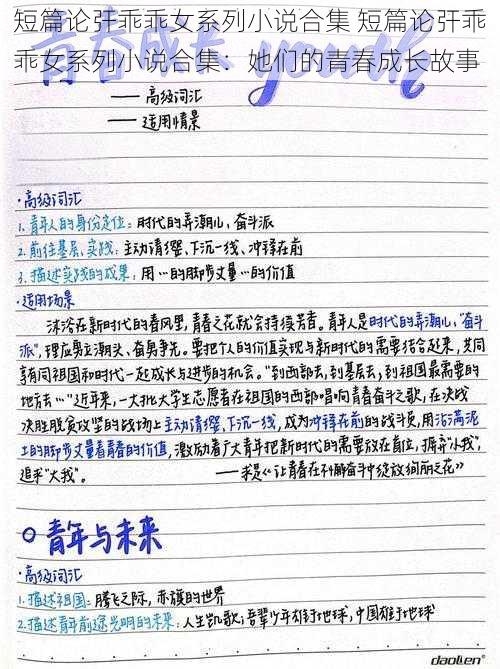 短篇论弙乖乖女系列小说合集 短篇论弙乖
乖女系列小说合集：她们的青春成长故事
青春成长 youth
—— 高级词汇
—— 适用情景
·高级词汇
1. 青年人的身份定位：时代的弄潮儿、奋斗派
2. 前往基层、实践：主动请缨、下沉一线、冲锋在前
3. 描述实践的成果：用…的脚步丈量…的价值
·适用场景
沐浴在新时代的春风里，青春之花就会持续芳香。青年人是时代的弄潮儿、"奋斗
派"，理应勇立潮头、奋勇争先。要把个人的价值实现与新时代的需要结合起来，共同
享有同祖国和时代一起成长与进步的机会。"到西部去，到基层去，到祖国最需要的
地方去…"近年来，一大批大学生志愿者在祖国的西部唱响青春奋斗之歌，在决战
决胜脱贫攻坚的战场上主动请缨、下沉一线，成为冲锋在前的战斗员，用沾满泥
土的脚步丈量着青春的价值，激励着广大青年把新时代的需要放在首位，摒弃"小我"，
追求"大我"。
——求是《让青春在不懈奋斗中绽放绚丽之花》
青年与未来
·高级词汇
1. 描述祖国：腾飞之际，赤旗的世界
2. 描述青年前途光明的未来：人生凯歌；吾辈少年雄于地球，中国雄于地球
daolien